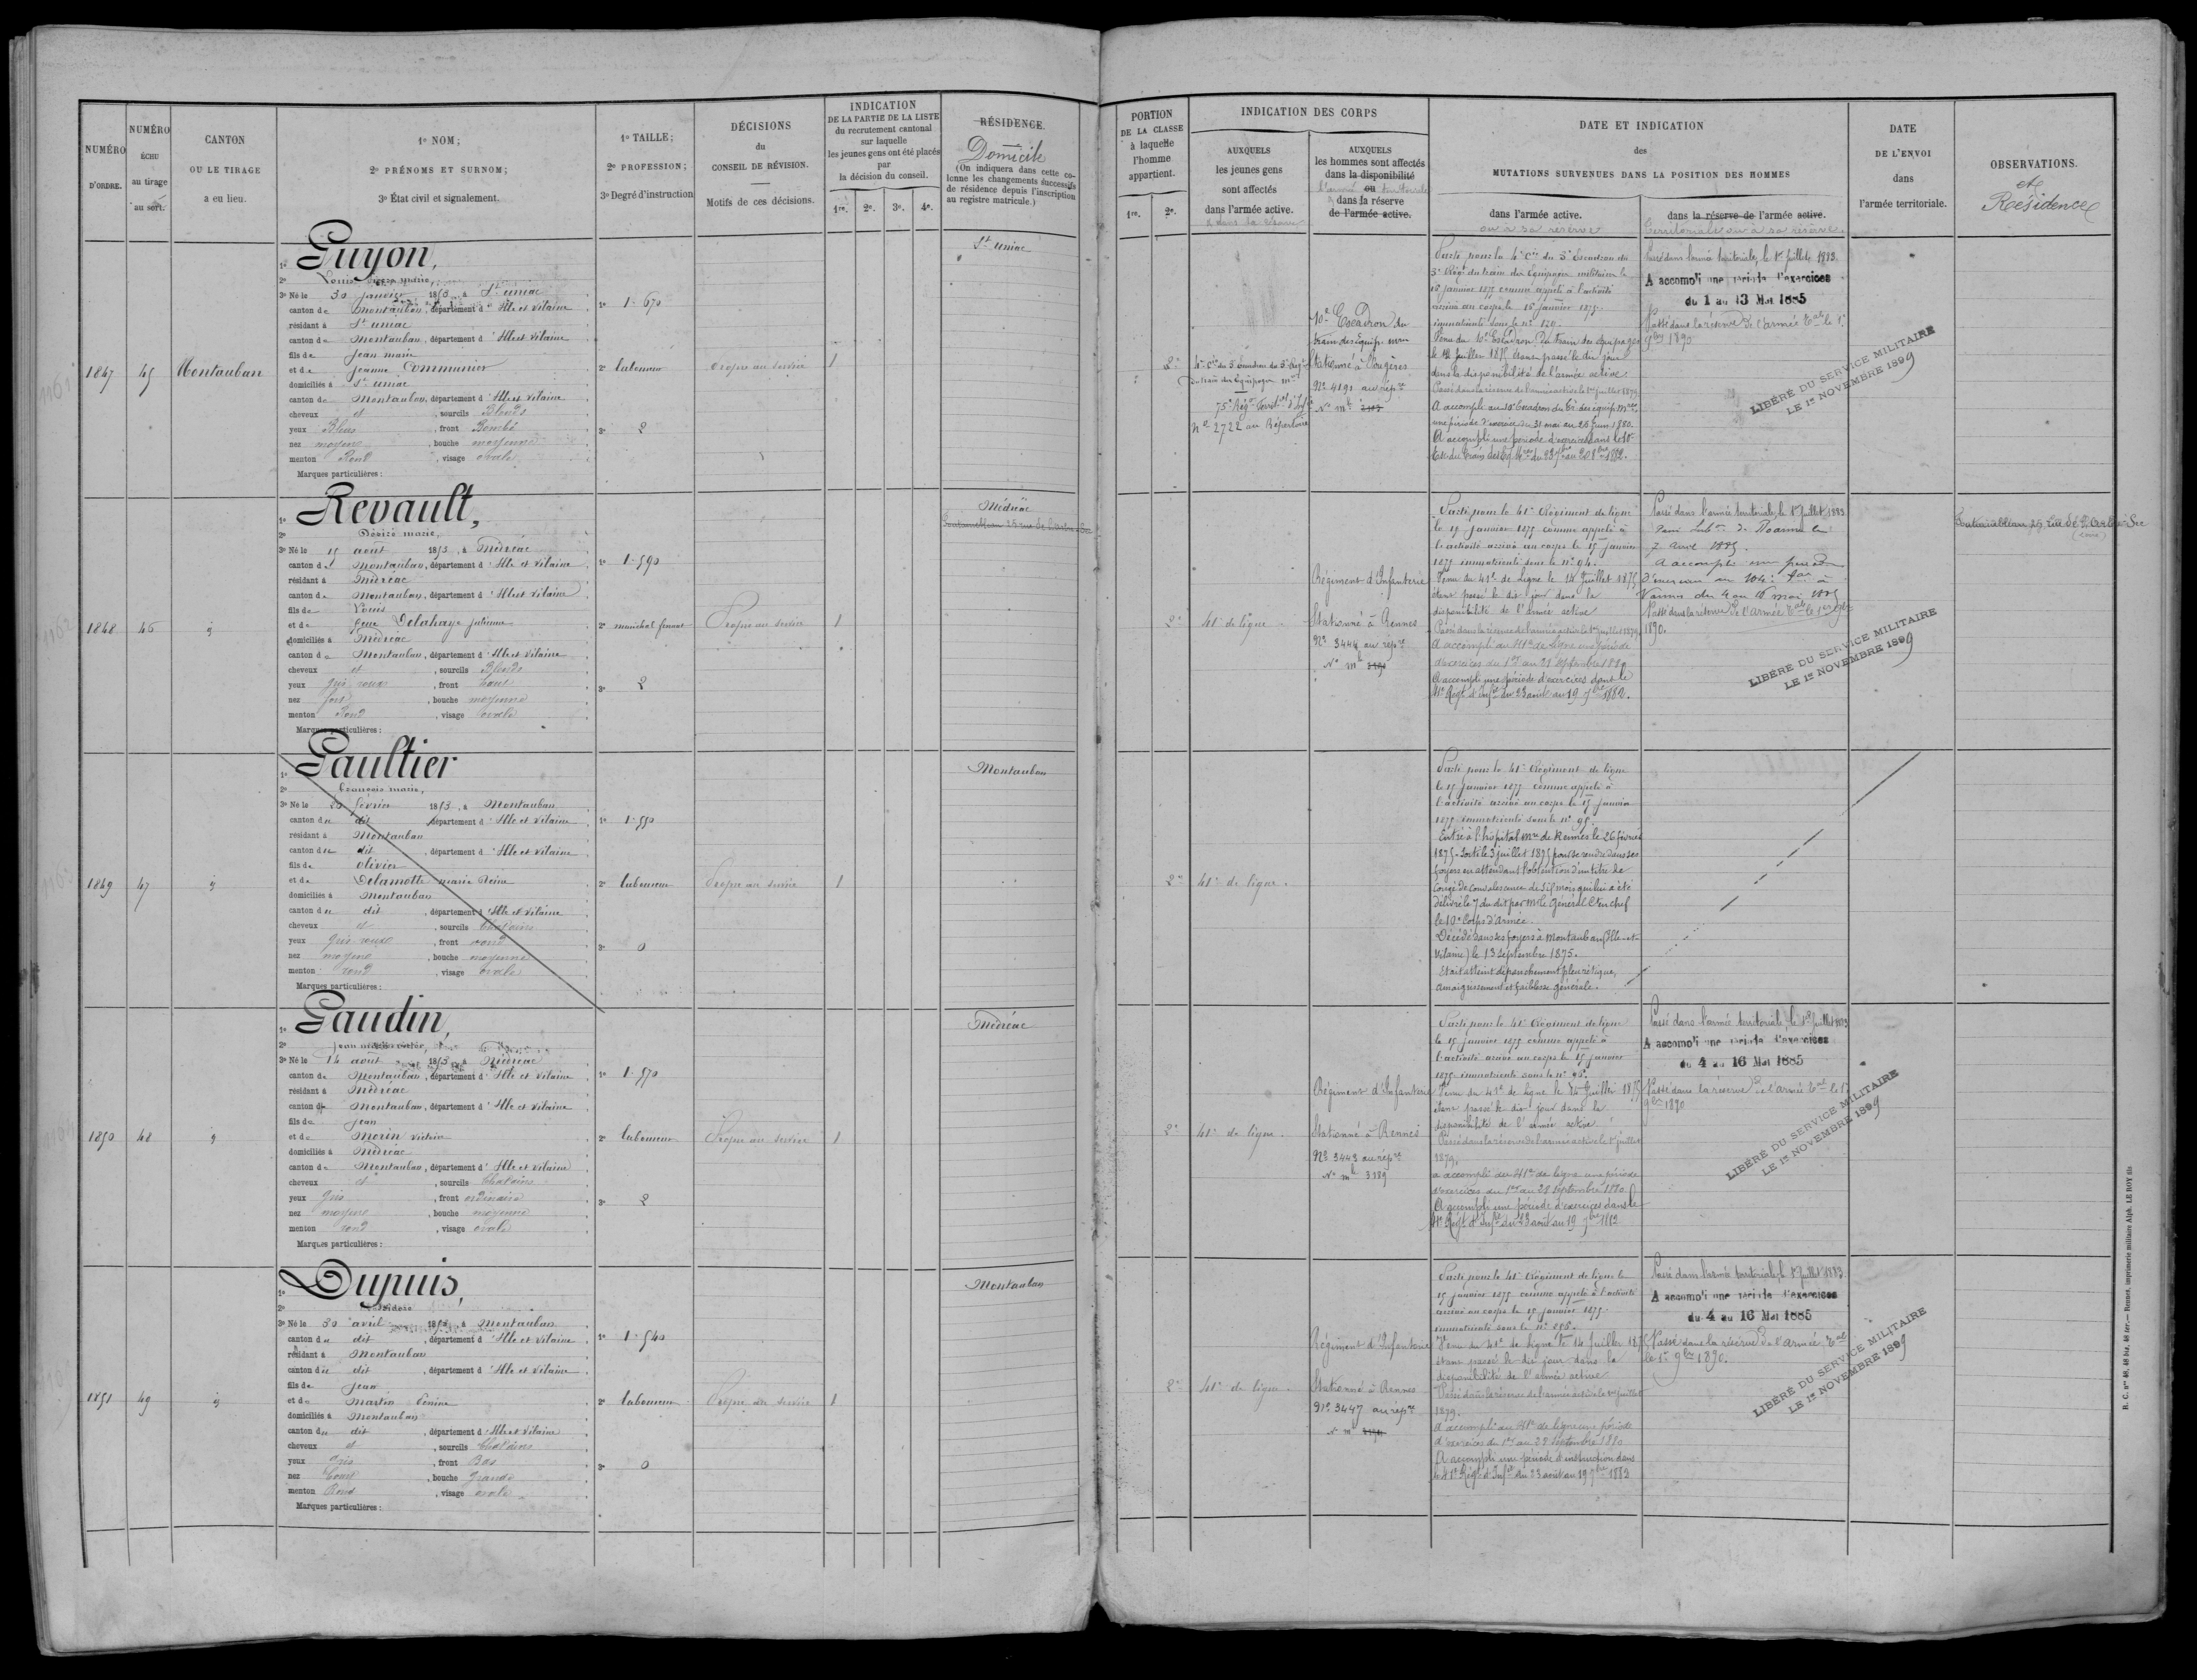 NUMÉRO
D'ORDRE.
NUMÉRO
ÉCHU
au tirage
au sort.
CANTON
OU LE TIRAGE
a eu lieu.
1º NOM;
2º PRÉNOMS ET SURNOM;
3º État civil et signalement.
1º TAILLE;
2º PROFESSION;
3º Degré d'instruction
DÉCISIONS
du
CONSEIL DE RÉVISION.
Motifs de ces décisions.
INDICATION
DE LA PARTIE DE LA LISTE
du recrutement cantonal
sur laquelle
les jeunes gens ont été placés
par
la décision du conseil.
1re. 2e. 3e. 4e.
RÉSIDENCE.
Domicile
(On indiquera dans cette co-
lonne les changements successifs
de résidence depuis l'inscription
au registre matricule.)
1847
45
Montauban
1º Guyon,
2º Louis
3º Né le 30 janvier 1853, à St uniac
canton de Montauban, département d'Ille et Vilaine
résidant à St uniac
canton de Montauban, département d'Ille et Vilaine
fils de Jean marie
et de Jeanne Communier
domiciliés à St uniac
canton de Montauban, département d'Ille et Vilaine
cheveux et, sourcils Blonds
yeux Bleus, front Bombé
nez moyen, bouche moyenne
menton Rond, visage ovale
Marques particulières :
1º 1.670
2º laboureur
3º 2
Propre au service
1
St uniac
1848
46
1º Revault,
2º Désiré marie,
3º Né le 15 août 1853, à Médréac
canton de Montauban, département d'Ille et Vilaine
résidant à Médréac
canton de Montauban, département d'Ille et Vilaine
fils de Louis
et de feue Delahaye julienne
domiciliés à Médréac
canton de Montauban, département d'Ille et Vilaine
cheveux et, sourcils Blonds
yeux gris roux, front haut
nez fort, bouche moyenne
menton Rond, visage ovale
Marques particulières :
1º 1.590
2º maréchal ferrant
3º 2
Propre au service
1
Médréac
1849
47
1º Gaultier
2º françois marie,
3º Né le 20 février 1853, à Montauban
canton du dit, département d'Ille et Vilaine
résidant à Montauban
canton du dit, département d'Ille et Vilaine
fils de olivier
et de Delamotte marie Reine
domiciliés à Montauban
canton du dit, département d'Ille et Vilaine
cheveux et, sourcils Chatains
yeux Gris roux, front rond
nez moyen, bouche moyenne
menton rond, visage ovale
Marques particulières :
1º 1.550
2º laboureur
3º 0
Propre au service
1
Montauban
1850
48
1º Gaudin,
2º
3º Né le 14 août 1853, à Médréac
canton de Montauban, département d'Ille et Vilaine
résidant à Médréac
canton de Montauban, département d'Ille et Vilaine
fils de Jean
et de Morin Victoire
domiciliés à Médréac
canton de Montauban, département d'Ille et Vilaine
cheveux et, sourcils Chatains
yeux Gris, front ordinaire
nez moyen, bouche moyenne
menton rond, visage ovale
Marques particulières :
1º 1.570
2º laboureur
3º 2
Propre au service
1
Médréac
1851
49
1º Dupuis,
2º
3º Né le 30 avril 1853, à Montauban
canton du dit, département d'Ille et Vilaine
résidant à Montauban
canton du dit, département d'Ille et Vilaine
fils de Jean
et de Martin
domiciliés à Montauban
canton du dit, département d'Ille et Vilaine
cheveux et, sourcils Chatains
yeux Gris, front Bas
nez Court, bouche Grande
menton Rond, visage ovale
Marques particulières :
1º 1.540
2º laboureur
3º 0
Propre au service
1
Montauban
PORTION
DE LA CLASSE
à laquelle
l'homme
appartient.
1re. 2e.
INDICATION DES CORPS
AUXQUELS
les jeunes gens
sont affectés
dans l'armée active.
AUXQUELS
les hommes sont affectés
dans la disponibilité
ou
dans la réserve
de l'armée active.
DATE ET INDICATION
des
MUTATIONS SURVENUES DANS LA POSITION DES HOMMES
dans l'armée active.
ou sa réserve
dans la réserve de l'armée active.
territoriale ou à sa réserve
DATE
DE L'ENVOI
dans
l'armée territoriale.
OBSERVATIONS.
et
Résidence
2e
4e Cie du 3e Escadron du 3e Régt
du train des Equipages mres
75e Régt Territ. d'Infie
No 2722 au Répertoire
10e Escadron du
train des équip. mres
Stationné à Fougères
No 4191 au répre
Parti pour la 4e Cie du 3e Escadron du
3e Régt du train des Equipages militaires le
16 janvier 1875 comme appelé à l'activité
arrivé au corps le 16 janvier 1875.
immatriculé sous le no 120.
Venu du 10e Escadron du train des équipages
le 14 Juillet 1875 étant passé le dit jour
dans la disponibilité de l'armée active.
Passé dans la réserve de l'armée active le 1er juillet 1879.
A accompli au 10e Escadron du tr. des équip. mres
une période d'exercices du 31 mai au 26 juin 1880.
A accompli une période d'exercices dans le 10e
Passé dans l'armée territoriale, le 1er juillet 1883.
A accompli une période d'exercices
du 1 au 13 Mai 1885
Passé dans la réserve de l'armée tale le 1er
9bre 1890
LIBÉRÉ DU SERVICE MILITAIRE
LE 1er NOVEMBRE 1899
2e
41e de ligne.
Régiment d'Infanterie
Stationné à Rennes
No 3444 au répre
Parti pour le 41e Régiment de ligne
le 15 janvier 1875 comme appelé à
l'activité arrivé au corps le 15 janvier
1875 immatriculé sous le no 94.
Venu du 41e de ligne le 14 Juillet 1875
étant passé le dit jour dans la
disponibilité de l'armée active
Passé dans la réserve de l'armée active le 1er juillet 1879.
A accompli au 41e de ligne une période
d'exercices du 1er au 28 septembre 1880
A accompli une période d'exercices dans le
41e Régt d'Infie du 23 août au 19 7bre 1882.
Passé dans l'armée territoriale, le 1er juillet 1883.
7 avril 1885.
A accompli une période
d'exercices au 104e
Vannes du 4 au 16 mai 1885
Passé dans la réserve de l'armée tale le 1er 9bre
1890.
LIBÉRÉ DU SERVICE MILITAIRE
LE 1er NOVEMBRE 1899
2e
41e de ligne.
Parti pour le 41e Régiment de ligne
le 15 janvier 1875 comme appelé à
l'activité arrivé au corps le 15 janvier
1875 immatriculé sous le no 95.
Entré à l'hôpital mre de Rennes le 26 février
1875. Sorti le 3 juillet 1875 pour se rendre dans ses
foyers en attendant l'obtention d'un titre de
congé de convalescence de six mois qui lui a été
délivré le 7 du dit par Mr le Général Ct en chef
le 10e Corps d'Armée.
Décédé dans ses foyers à Montauban (Ille-et-
Vilaine) le 13 Septembre 1875.
Etait atteint d'épanchement pleurétique,
amaigrissement et faiblesse générale.
2e
41e de ligne.
Régiment d'Infanterie
Stationné à Rennes
No 3443 au répre
No mle 3389
Parti pour le 41e Régiment de ligne
le 15 janvier 1875 comme appelé à
l'activité arrivé au corps le 15 janvier
1875 immatriculé sous le no 96.
Venu du 41e de ligne le 14 Juillet 1875
étant passé le dit jour dans la
disponibilité de l'armée active
Passé dans la réserve de l'armée active le 1er juillet
1879.
a accompli au 41e de ligne une période
d'exercices du 1er au 28 septembre 1880.
A accompli une période d'exercices dans le
41e Régt d'Infie du 23 août au 19 7bre 1882
Passé dans l'armée territoriale, le 1er juillet 1883
A accompli une période d'exercices
du 4 au 16 Mai 1885
Passé dans la réserve de l'armée tale le 1er
9bre 1890
LIBÉRÉ DU SERVICE MILITAIRE
LE 1er NOVEMBRE 1899
2e
41e de ligne.
Régiment d'Infanterie
Stationné à Rennes
No 3447 au répre
Parti pour le 41e Régiment de ligne le
15 janvier 1875 comme appelé à l'activité
arrivé au corps le 15 janvier 1875.
immatriculé sous le no
Venu du 41e de ligne le 14 Juillet 1875
étant passé le dit jour dans la
disponibilité de l'armée active
Passé dans la réserve de l'armée active le 1er juillet
1879.
A accompli au 41e de ligne une période
d'exercices du 1er au 28 Septembre 1880
A accompli une période d'instruction dans
le 41e Régt d'Infie du 23 août au 19 7bre 1882
Passé dans l'armée territoriale, le 1er juillet 1883
A accompli une période d'exercices
du 4 au 16 Mai 1885
Passé dans la réserve de l'armée tale
le 1er 9bre 1890.
LIBÉRÉ DU SERVICE MILITAIRE
LE 1er NOVEMBRE 1899
R. C. nos 48, 48 bis, 48 ter. — Rennes, imprimerie militaire Alph. LE ROY fils